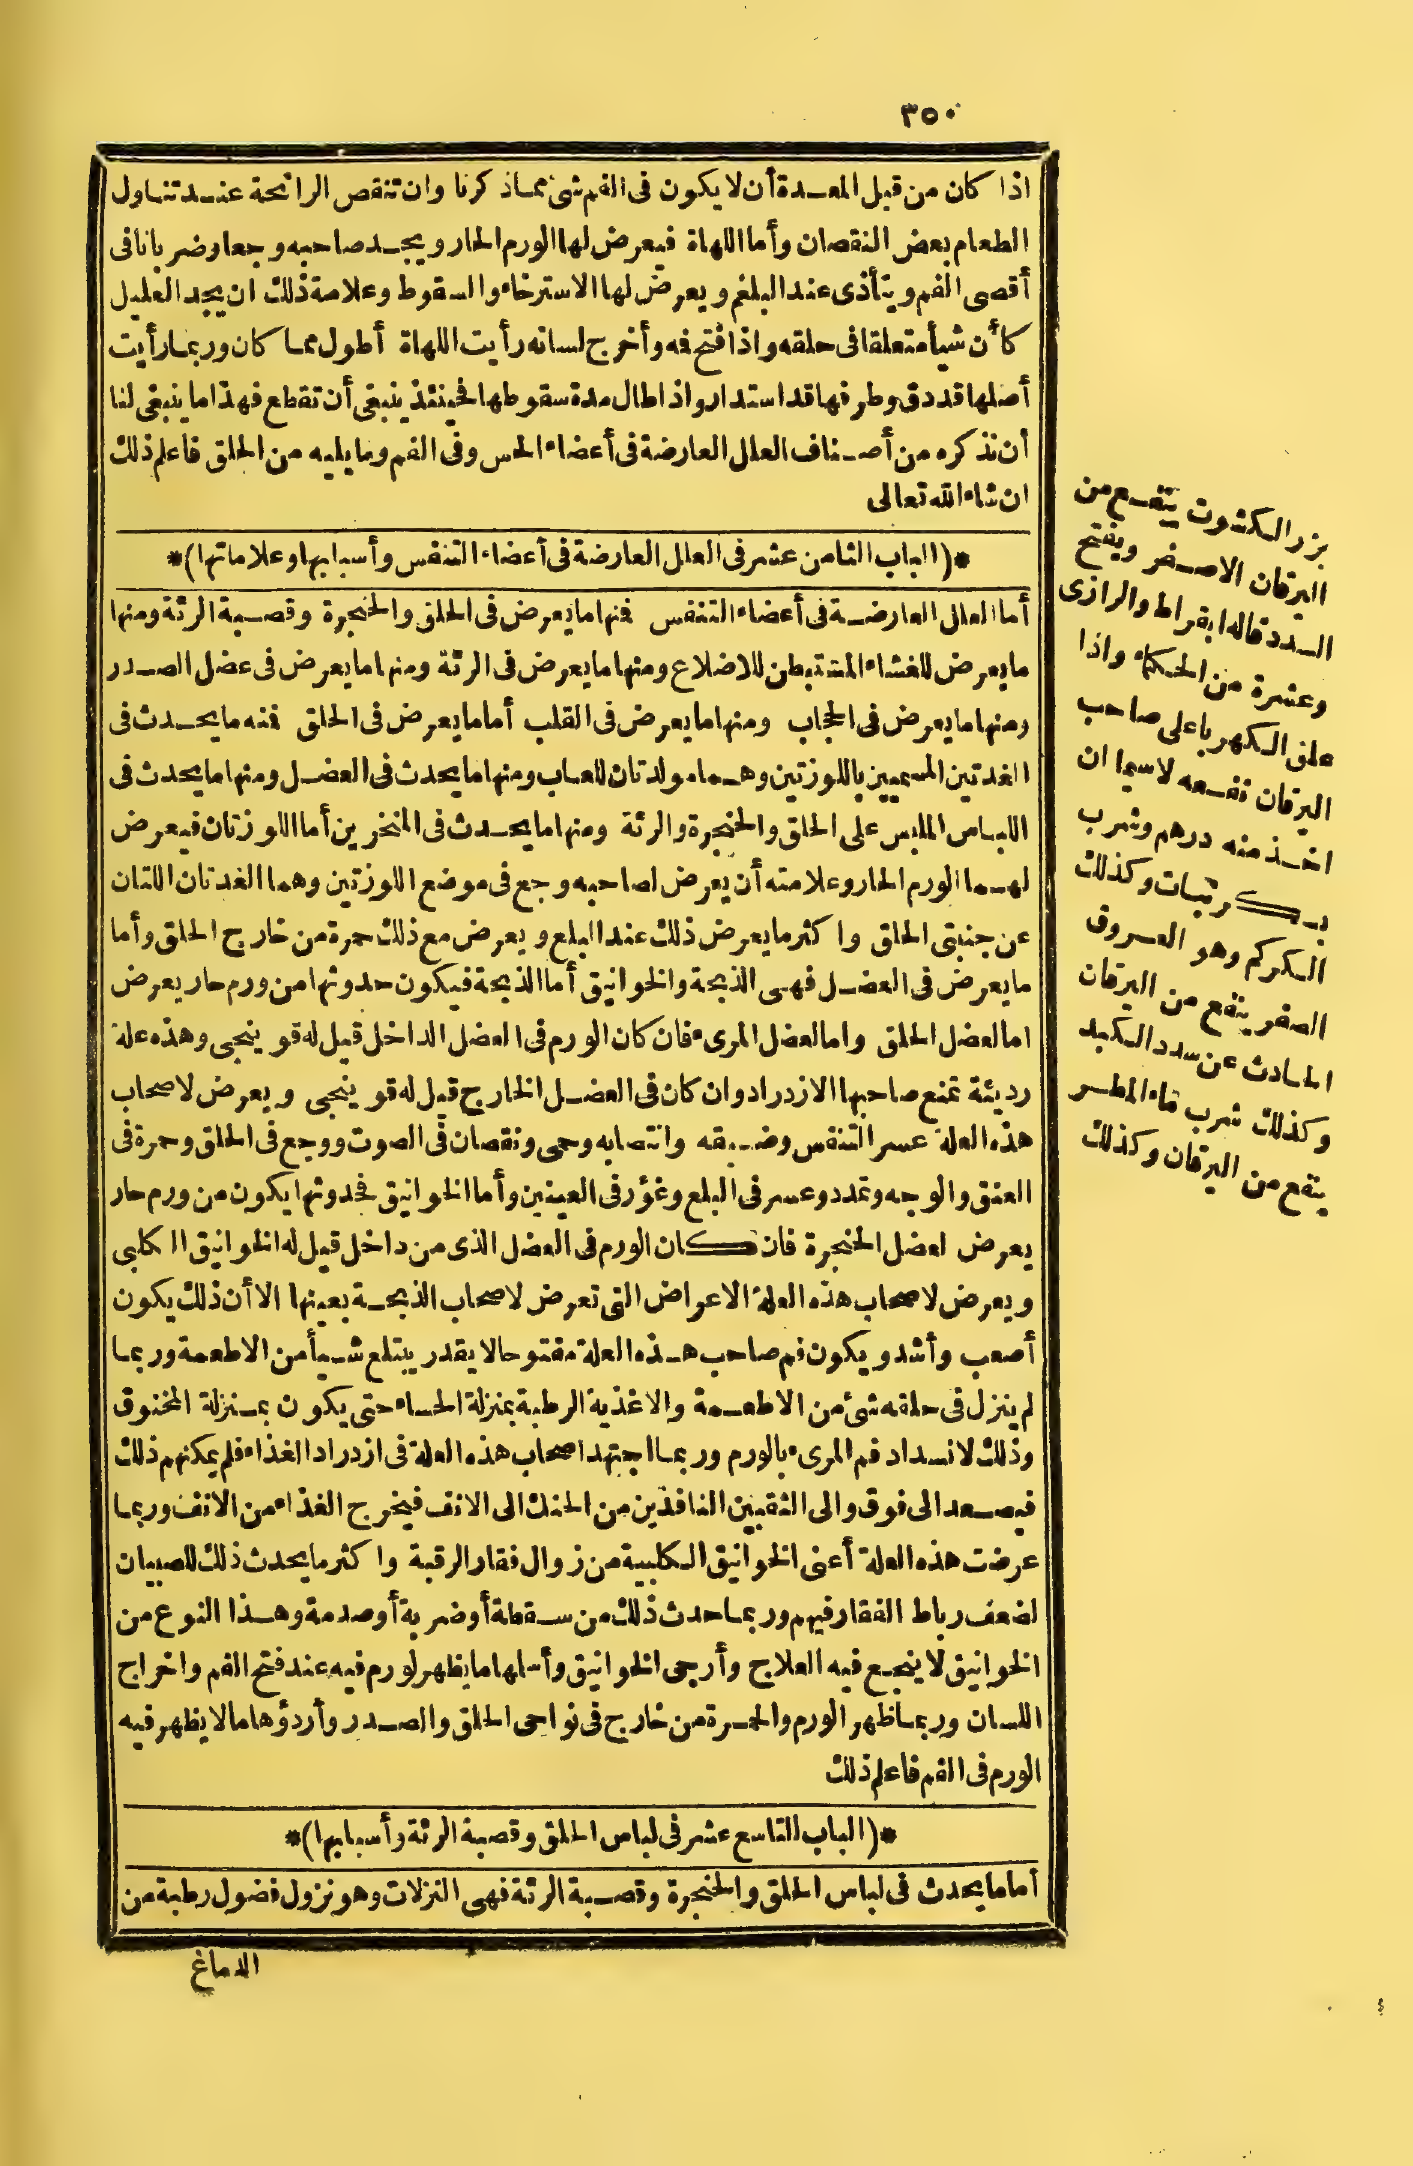 ٣٥٠
اذا كان من قبل المعدة أن لا يكون في الفم شئ مماذ كرنا وان تنقص الرائحة عند تناول
الطعام بعض النقصان وأما اللهاة فيعرض لها الورم الحار ويجد صاحبه وجعا وضربانا في
أقصى الفم ويتأذى عند البلغم ويعرض لها الاسترخاء والسقوط وعلامة ذلك ان يجد العليل
كأن شيأ متعلقا في حلقه واذا فتح فه وأخرج لسانه رأيت اللهاة أطول مما كان وربما رأيت
أصلها قد دق وطرفها قد استدار واذا طال مدة سقوطها فحينئذ ينبغي أن تقطع فهذا ما ينبغي لنا
أن نذكره من أصناف العلل العارضة في أعضاء الحس وفي الفم وما يليه من الحلق فاعلم ذلك
ان شاء الله تعالى
*(الباب الثامن عشر في العلل العارضة في أعضاء التنفس وأسبابها وعلاماتها)*
أما العلل العارضة في أعضاء التنفس فنها ما يعرض في الحلق والحنجرة وقصبة الرئة ومنها
ما يعرض للغشاء المستبطن للاضلاع ومنها ما يعرض في الرئة ومنها ما يعرض في عضل الصدر
ومنها ما يعرض في الحجاب ومنها ما يعرض في القلب أما ما يعرض في الحلق فنه ما يحدث في
الغدتين المسميين باللوزتين وهما مولدتان للعاب ومنها ما يحدث في العضل ومنها ما يحدث في
اللباس الملبس على الحلق والحنجرة والرئة ومنها ما يحدث في المنخرين أما اللوزتان فيعرض
لهما الورم الحار وعلامته أن يعرض لصاحبه وجع في موضع اللوزتين وهما الغدتان اللتان
عن جنبتي الحلق واكثر ما يعرض ذلك عند البلع ويعرض مع ذلك حمرة من خارج الحلق وأما
ما يعرض في العضل فهي الذبحة والخوانيق أما الذبحة فيكون حدوثها من ورم حار يعرض
اما لعضل الحلق واما لعضل المرىء فان كان الورم في العضل الداخل قيل له قو ينجى وهذه علة
رديئة تمنع صاحبها الازدراد وان كان في العضل الخارج قيل له قو ينجى ويعرض لاصحاب
هذه العلة عسر التنفس وضيقه وانتصابه وحمى ونقصان في الصوت ووجع في الحلق وحمرة في
العنق والوجه وتمدد وعسر في البلع وغؤر في العينين وأما الخوانيق فحدوثها يكون من ورم حار
يعرض لعضل الحنجرة فان كان الورم في العضل الذي من داخل قيل له الخوانيق الكلبى
ويعرض لاصحاب هذه العلة الاعراض التي تعرض لاصحاب الذبحة بعينها الا أن ذلك يكون
أصعب وأشد ويكون فم صاحب هذه العلة مفتوحا لا يقدر يبتلع شيأ من الاطعمة وربما
لم ينزل في حلقه شئ من الاطعمة والاغذية الرطبة بمنزلة الحساء حتى يكون بمنزلة المخنوق
وذلك لانسداد فم المرىء بالورم وربما اجتهد اصحاب هذه العلة في ازدراد الغذاء فلم يمكنهم ذلك
فيصعد الى فوق والى الثقبين النافذين من الحنك الى الانف فيخرج الغذاء من الانف وربما
عرضت هذه العلة أعنى الخوانيق الكلبية من زوال فقار الرقبة واكثر ما يحدث ذلك للصبيان
لضعف رباط الفقار فيهم وربما حدث ذلك من سقطة أو ضربة أو صدمة وهذا النوع من
الخوانيق لا ينجع فيه العلاج وأرجى الخوانيق وأسلها ما يظهر لورم فيه عند فتح الفم واخراج
اللسان وربما ظهر الورم والحمرة من خارج في نواحى الحلق والصدر وأردؤها مالا يظهر فيه
الورم في الفم فاعلم ذلك
*(الباب التاسع عشر في لباس الحلق وقصبة الرئة وأسبابها)*
أما ما يحدث في لباس الحلق والحنجرة وقصبة الرئة فهى النزلات وهو نزول فضول رطبة من
الدماغ
بزر الكشوت ينفع من
اليرقان الاصفر ويفتح
السدد قاله ابقراط والرازى
وعشرة من الحكماء واذا
علق الكهربا على صاحب
اليرقان نفعه لاسيما ان
اخذ منه درهم وشرب
بسكر نبات وكذلك
الكركم وهو العروق
الصفر ينفع من اليرقان
الحادث عن سدد الكبد
وكذلك شرب ماء المطر
ينفع من اليرقان وكذلك